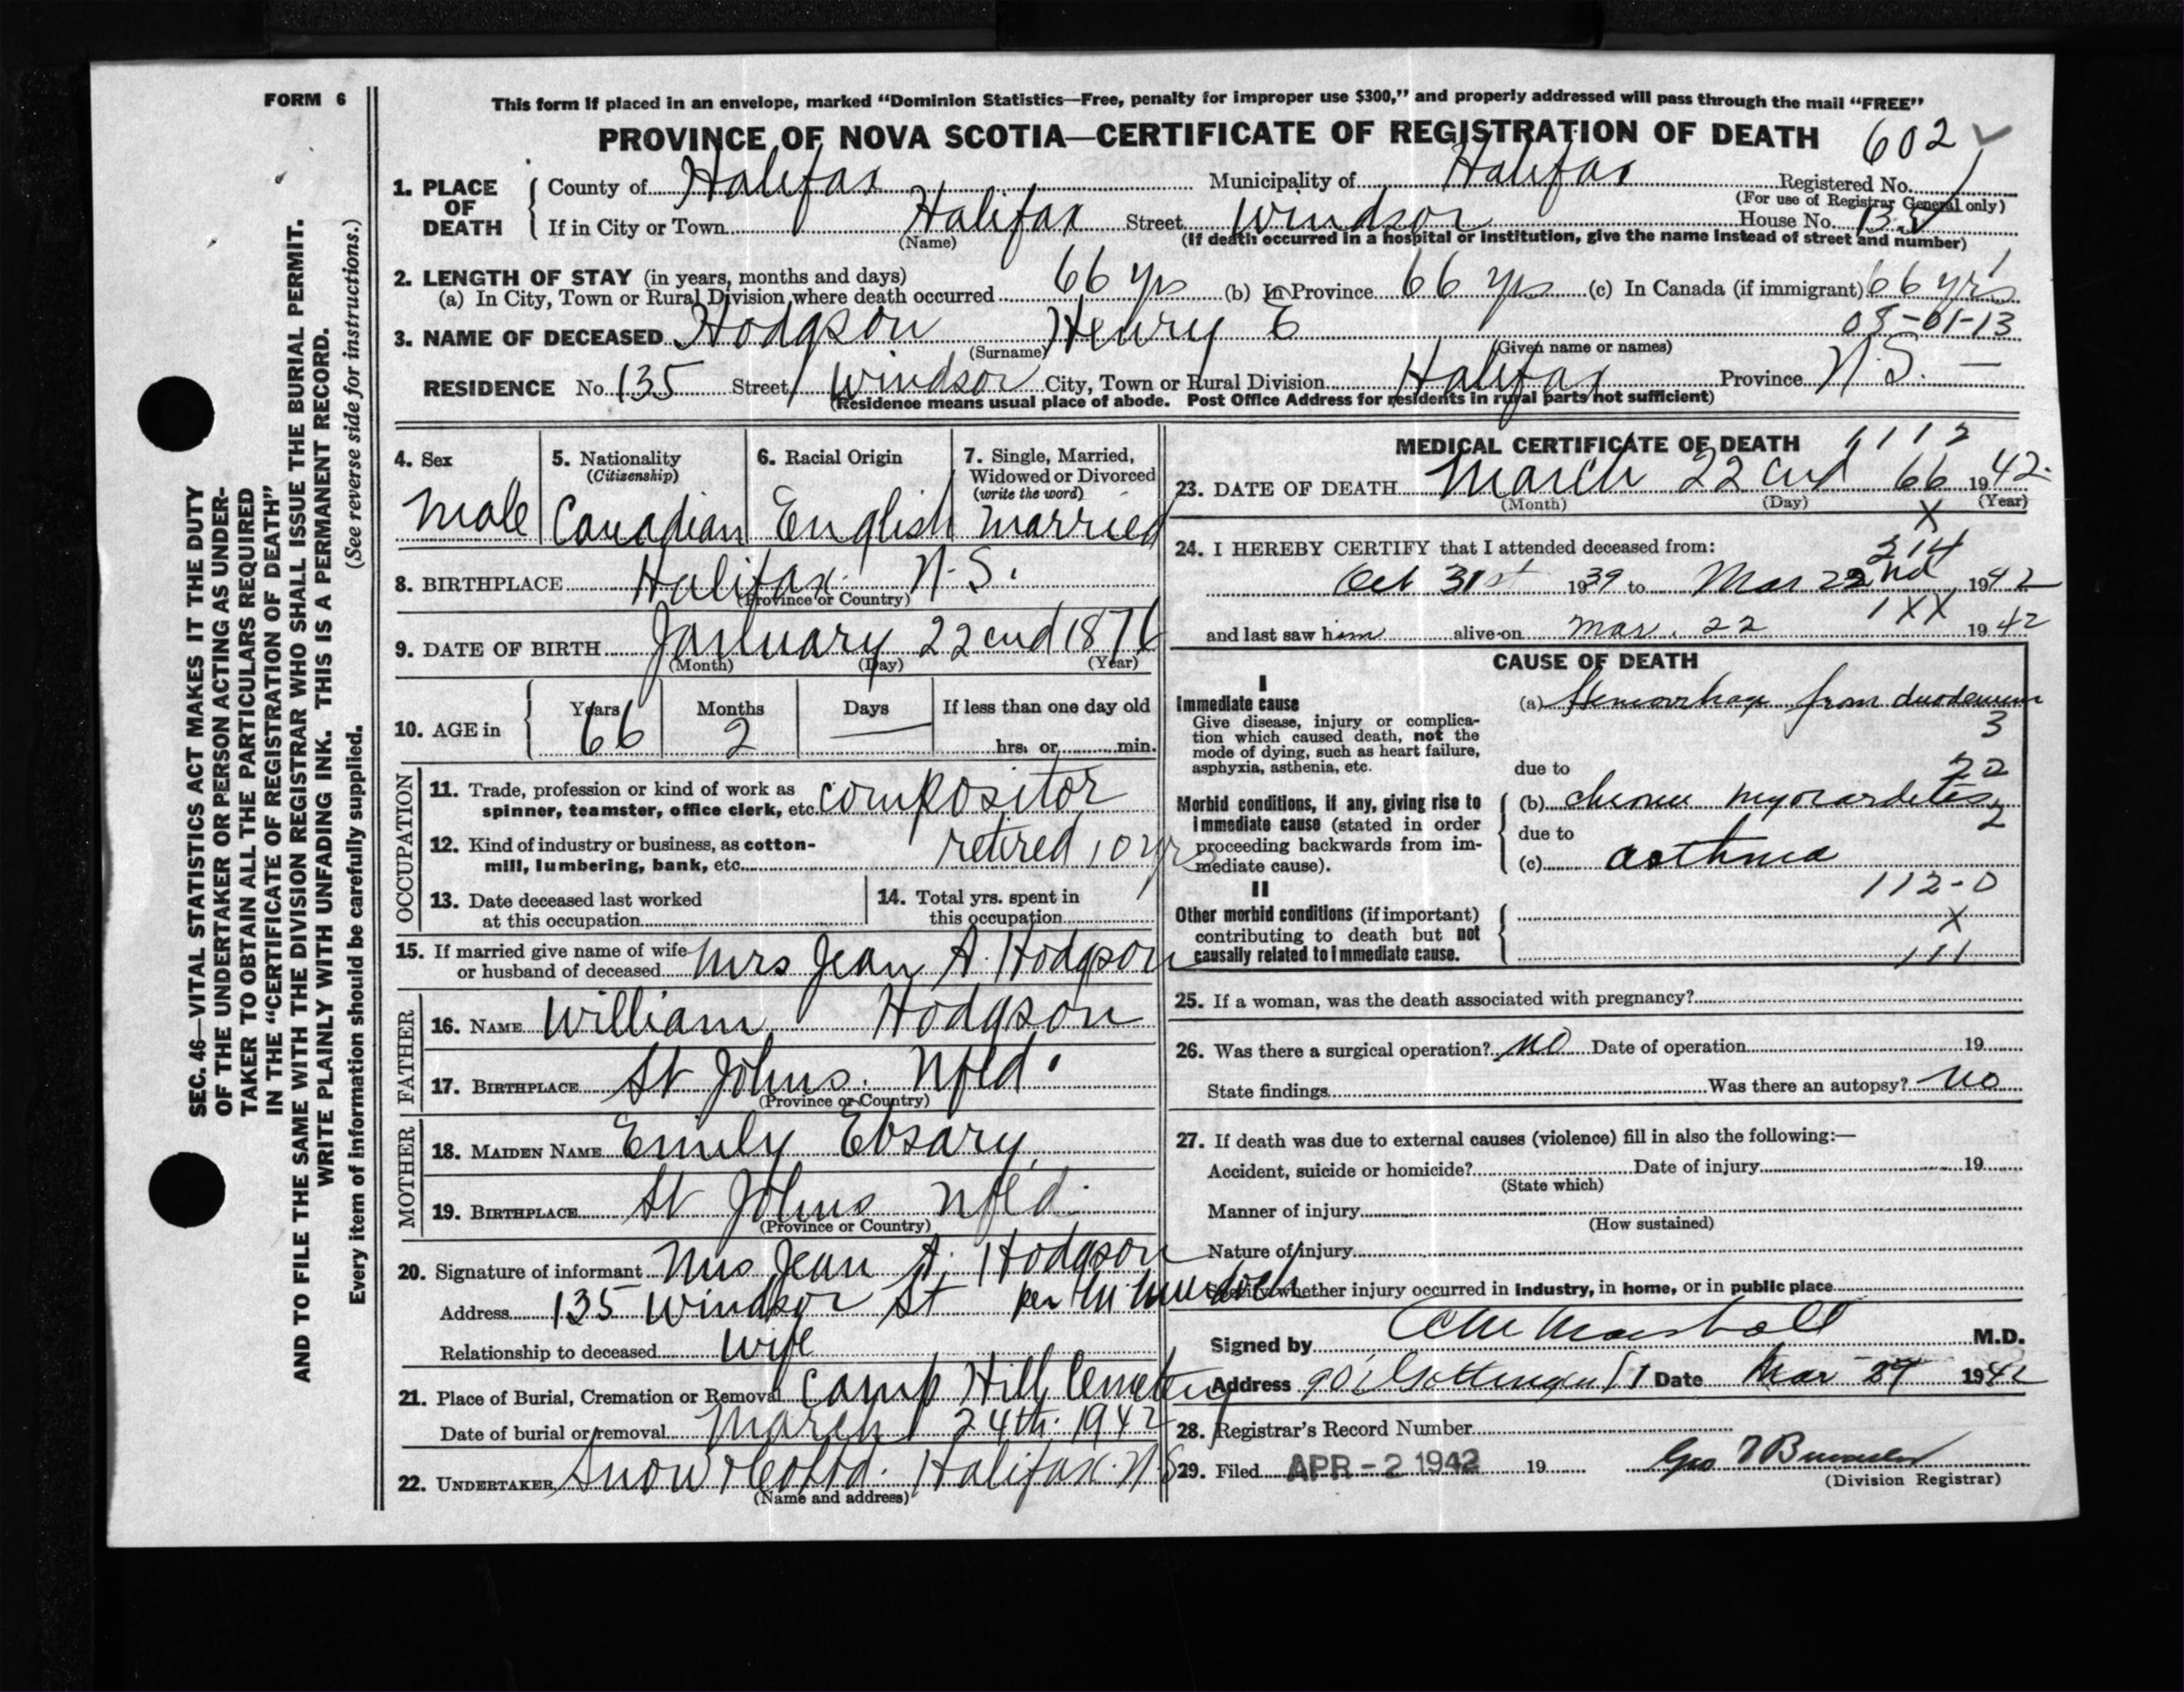 FORM 6
This form if placed in an envelope, marked “Dominion Statistics—Free, penalty for improper use $300,” and properly addressed will pass through the mail “FREE”
PROVINCE OF NOVA SCOTIA—CERTIFICATE OF REGISTRATION OF DEATH 602
1. PLACE OF DEATH
County of Halifax Municipality of Halifax Registered No.
(For use of Registrar General only)
If in City or Town Halifax Street Windsor House No. 135
(Name) (If death occurred in a hospital or institution, give the name instead of street and number)
2. LENGTH OF STAY (in years, months and days)
(a) In City, Town or Rural Division where death occurred 66 yrs (b) In Province 66 yrs (c) In Canada (if immigrant) 66 yrs
3. NAME OF DECEASED Hodgson Henry E 03-01-13
(Surname) (Given name or names)
RESIDENCE No. 135 Street Windsor City, Town or Rural Division Halifax Province N.S. —
(Residence means usual place of abode. Post Office Address for residents in rural parts not sufficient)
4. Sex
male
5. Nationality
(Citizenship)
Canadian
6. Racial Origin
English
7. Single, Married,
Widowed or Divorced
(write the word)
married
8. BIRTHPLACE Halifax N.S.
(Province or Country)
9. DATE OF BIRTH January 22cnd 1876
(Month) (Day) (Year)
10. AGE in
Years Months Days If less than one day old
66 2 — hrs. or min.
OCCUPATION
11. Trade, profession or kind of work as
spinner, teamster, office clerk, etc. compositor
12. Kind of industry or business, as cotton-
mill, lumbering, bank, etc. retired 10 yrs
13. Date deceased last worked
at this occupation
14. Total yrs. spent in
this occupation
15. If married give name of wife
or husband of deceased Mrs Jean A. Hodgson
FATHER
16. NAME William Hodgson
17. BIRTHPLACE St Johns. Nfld.
(Province or Country)
MOTHER
18. MAIDEN NAME Emily Ebsary
19. BIRTHPLACE St Johns Nfld.
(Province or Country)
20. Signature of informant Mrs Jean A. Hodgson
Address 135 Windsor St per
Relationship to deceased Wife
21. Place of Burial, Cremation or Removal Camp Hill Cemetery
Date of burial or removal March 24th. 1942
22. UNDERTAKER Snow & Co Ltd. Halifax. N.S
(Name and address)
MEDICAL CERTIFICATE OF DEATH 1112
23. DATE OF DEATH March 22cnd 66 1942
(Month) (Day) (Year)
X
24. I HEREBY CERTIFY that I attended deceased from:
214
Oct 31st 1939 to Mar 22nd 1942
1XX
and last saw him alive on Mar. 22 1942
CAUSE OF DEATH
I
Immediate cause
Give disease, injury or complica-
tion which caused death, not the
mode of dying, such as heart failure,
asphyxia, asthenia, etc.
(a) Hemorrhage from duodenum
3
due to
22
Morbid conditions, if any, giving rise to
immediate cause (stated in order
proceeding backwards from im-
mediate cause).
(b) chronic myocarditis
2
due to
(c) asthma
112-0
II
Other morbid conditions (if important)
contributing to death but not
causally related to immediate cause.
X
111
25. If a woman, was the death associated with pregnancy?
26. Was there a surgical operation? no Date of operation 19
State findings Was there an autopsy? no
27. If death was due to external causes (violence) fill in also the following:—
Accident, suicide or homicide? Date of injury 19
(State which)
Manner of injury
(How sustained)
Nature of injury
Specify whether injury occurred in industry, in home, or in public place
Signed by Marshall M.D.
Address Gottingen St Date Mar 24 1942
28. Registrar’s Record Number
29. Filed APR - 2 1942 19
(Division Registrar)
SEC. 46—VITAL STATISTICS ACT MAKES IT THE DUTY
OF THE UNDERTAKER OR PERSON ACTING AS UNDER-
TAKER TO OBTAIN ALL THE PARTICULARS REQUIRED
IN THE “CERTIFICATE OF REGISTRATION OF DEATH”
AND TO FILE THE SAME WITH THE DIVISION REGISTRAR WHO SHALL ISSUE THE BURIAL PERMIT.
WRITE PLAINLY WITH UNFADING INK. THIS IS A PERMANENT RECORD.
Every item of information should be carefully supplied. (See reverse side for instructions.)